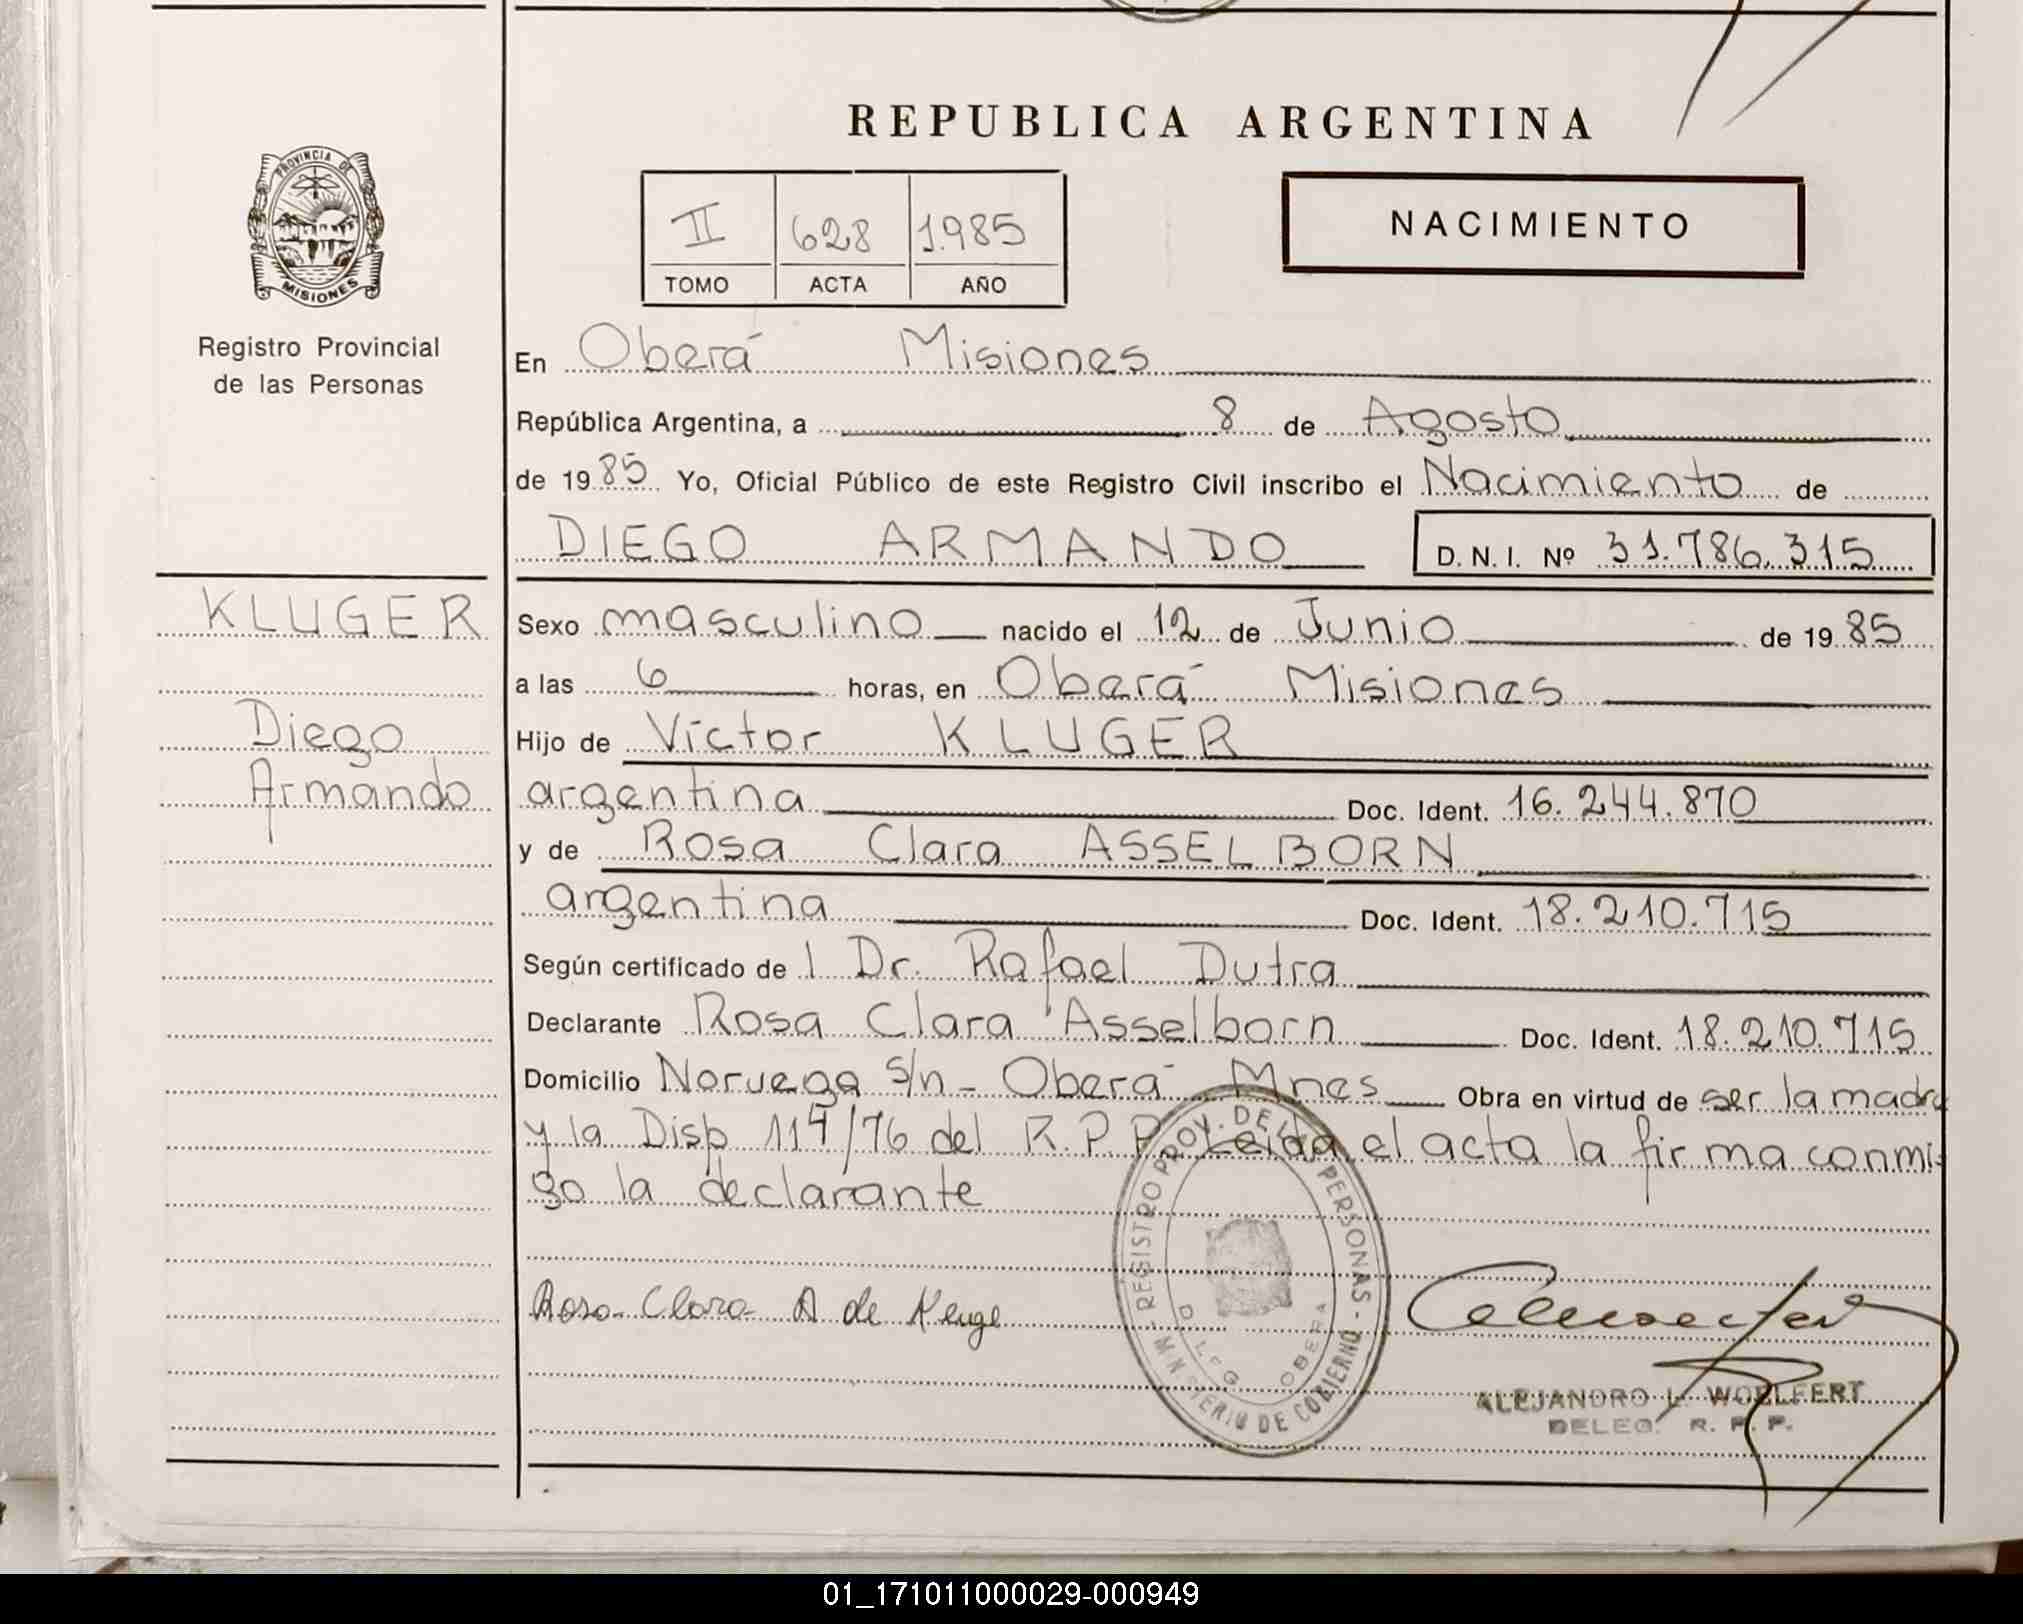 REPUBLICA ARGENTINA
PROVINCIA DE
MISIONES
Registro Provincial
de las Personas
II 628 1.985
TOMO ACTA AÑO
NACIMIENTO
En Oberá Misiones
República Argentina, a 8 de Agosto
de 1985 Yo, Oficial Público de este Registro Civil inscribo el Nacimiento de
DIEGO ARMANDO D. N. I. Nº 31.786.315
KLUGER
Diego
Armando
Sexo masculino nacido el 12 de Junio de 1985
a las 6 horas, en Oberá Misiones
Hijo de Víctor KLUGER
argentina Doc. Ident. 16.244.870
y de Rosa Clara ASSELBORN
argentina Doc. Ident. 18.210.715
Según certificado de l Dr. Rafael Dutra
Declarante Rosa Clara Asselborn Doc. Ident. 18.210.715
Domicilio Noruega s/n - Oberá Mnes Obra en virtud de ser la madre
y la Disp 114/76 del R.P.P. Leida el acta la firma conmi-
go la declarante
REGISTRO PROV. DE LAS PERSONAS - MINISTERIO DE GOBIERNO -
DELEG. OBERA
Rosa Clara A de
ALEJANDRO L. WOELFERT
DELEG. R. P. P.
01_171011000029-000949